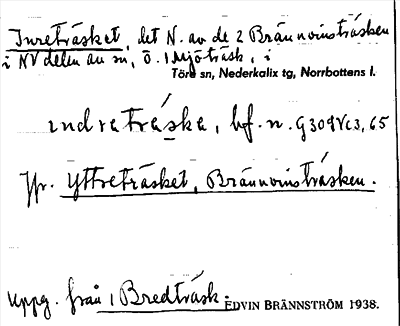 Inreträsket, det N. av de 2 Brännvinsträsken
i NV delen av sn, Ö. i Mjöträsk, i
Töre sn, Nederkalix tg, Norrbottens l.
ındretráska, bf. n. G309Vc3,65
Jfr. Yttreträsket, Brännvinsträsken.
Uppg. från i Bredträsk.
EDVIN BRÄNNSTRÖM 1938.